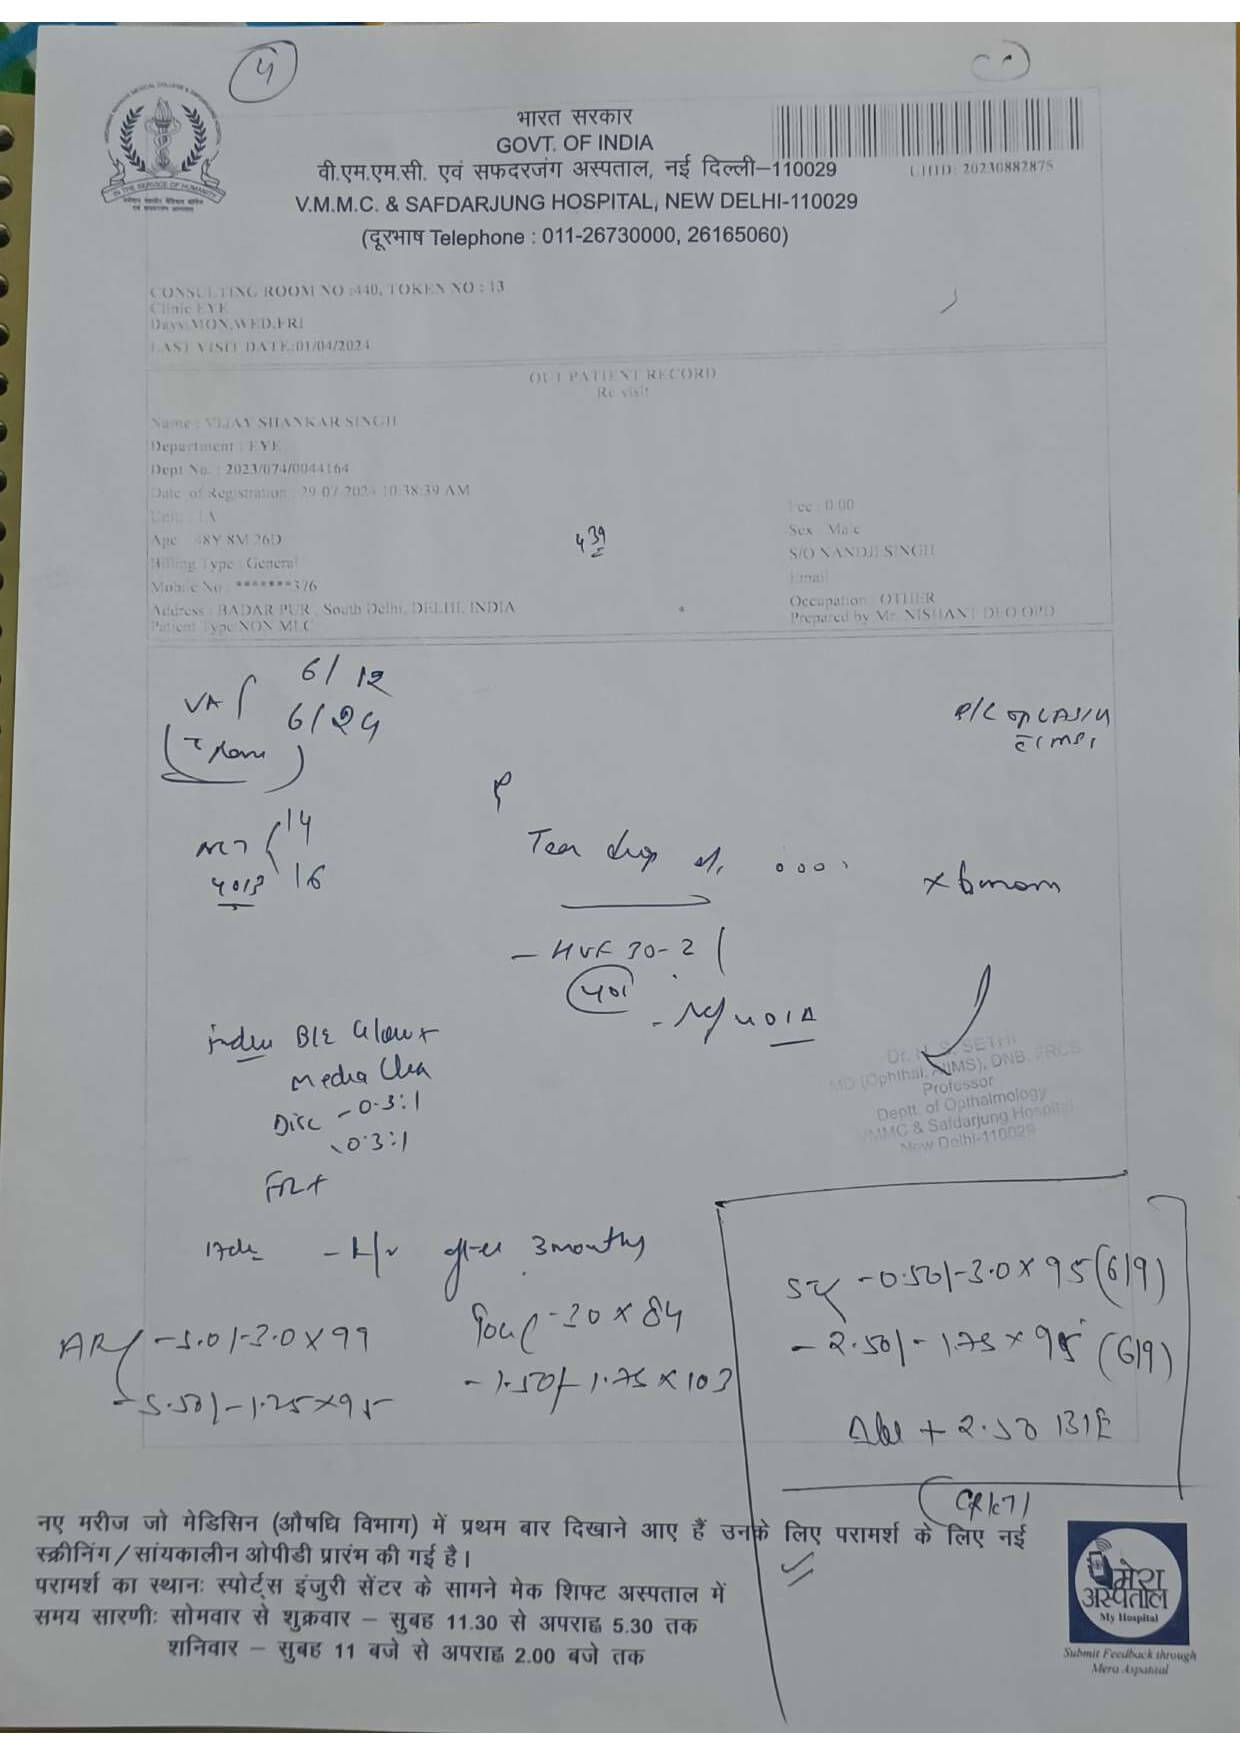 4
भारत सरकार
GOVT. OF INDIA
वी.एम.एम.सी. एवं सफदरजंग अस्पताल, नई दिल्ली–110029
V.M.M.C. & SAFDARJUNG HOSPITAL, NEW DELHI-110029
(दूरभाष Telephone : 011-26730000, 26165060)
UHID: 20230882875
IN THE SERVICE OF HUMANITY
CONSULTING ROOM NO :440, TOKEN NO : 13
Clinic EYE
Days:MON,WED,FRI
LAST VISIT DATE:01/04/2024
OUT PATIENT RECORD
Re visit
Name : VIJAY SHANKAR SINGH
Department : EYE
Dept No. : 2023/074/0044164
Date of Registration : 29-07-2024 10:38:39 AM
Unit : 1A
Age : 48Y 8M 26D
Billing Type : General
Mobile No : *******376
Address : BADAR PUR , South Delhi, DELHI, INDIA
Patient Type NON MLC
Fee : 0.00
Sex : Male
S/O NANDJI SINGH
Email
Occupation : OTHER
Prepared by Mr. NISHANT DEO OPD
439
VA 6/12
6/24
14
16
Tear drop
x 6
- HVF 30-2
401
401A
B/E
Media Clear
Disc - 0.3:1
0.3:1
FR+
after 3 months
AR -3.0 x 99
-1.25 x 95
-3.0 x 84
-1.50/-1.75 x 103
-0.50/-3.0 x 95 (6/9)
-2.50/-1.75 x 95 (6/9)
Add + 2.50 B/E
Dr. H. S. SETHI
MD (Ophthal, AIIMS), DNB, FRCS
Professor
Deptt. of Opthalmology
VMMC & Safdarjung Hospital
New Delhi-110029
नए मरीज जो मेडिसिन (औषधि विभाग) में प्रथम बार दिखाने आए हैं उनके लिए परामर्श के लिए नई
स्क्रीनिंग / सांयकालीन ओपीडी प्रारंभ की गई है।
परामर्श का स्थानः स्पोर्ट्स इंजुरी सेंटर के सामने मेक शिफ्ट अस्पताल में
समय सारणीः सोमवार से शुक्रवार – सुबह 11.30 से अपराह्न 5.30 तक
शनिवार – सुबह 11 बजे से अपराह्न 2.00 बजे तक
मेरा
अस्पताल
My Hospital
Submit Feedback through
Mera Aspataal